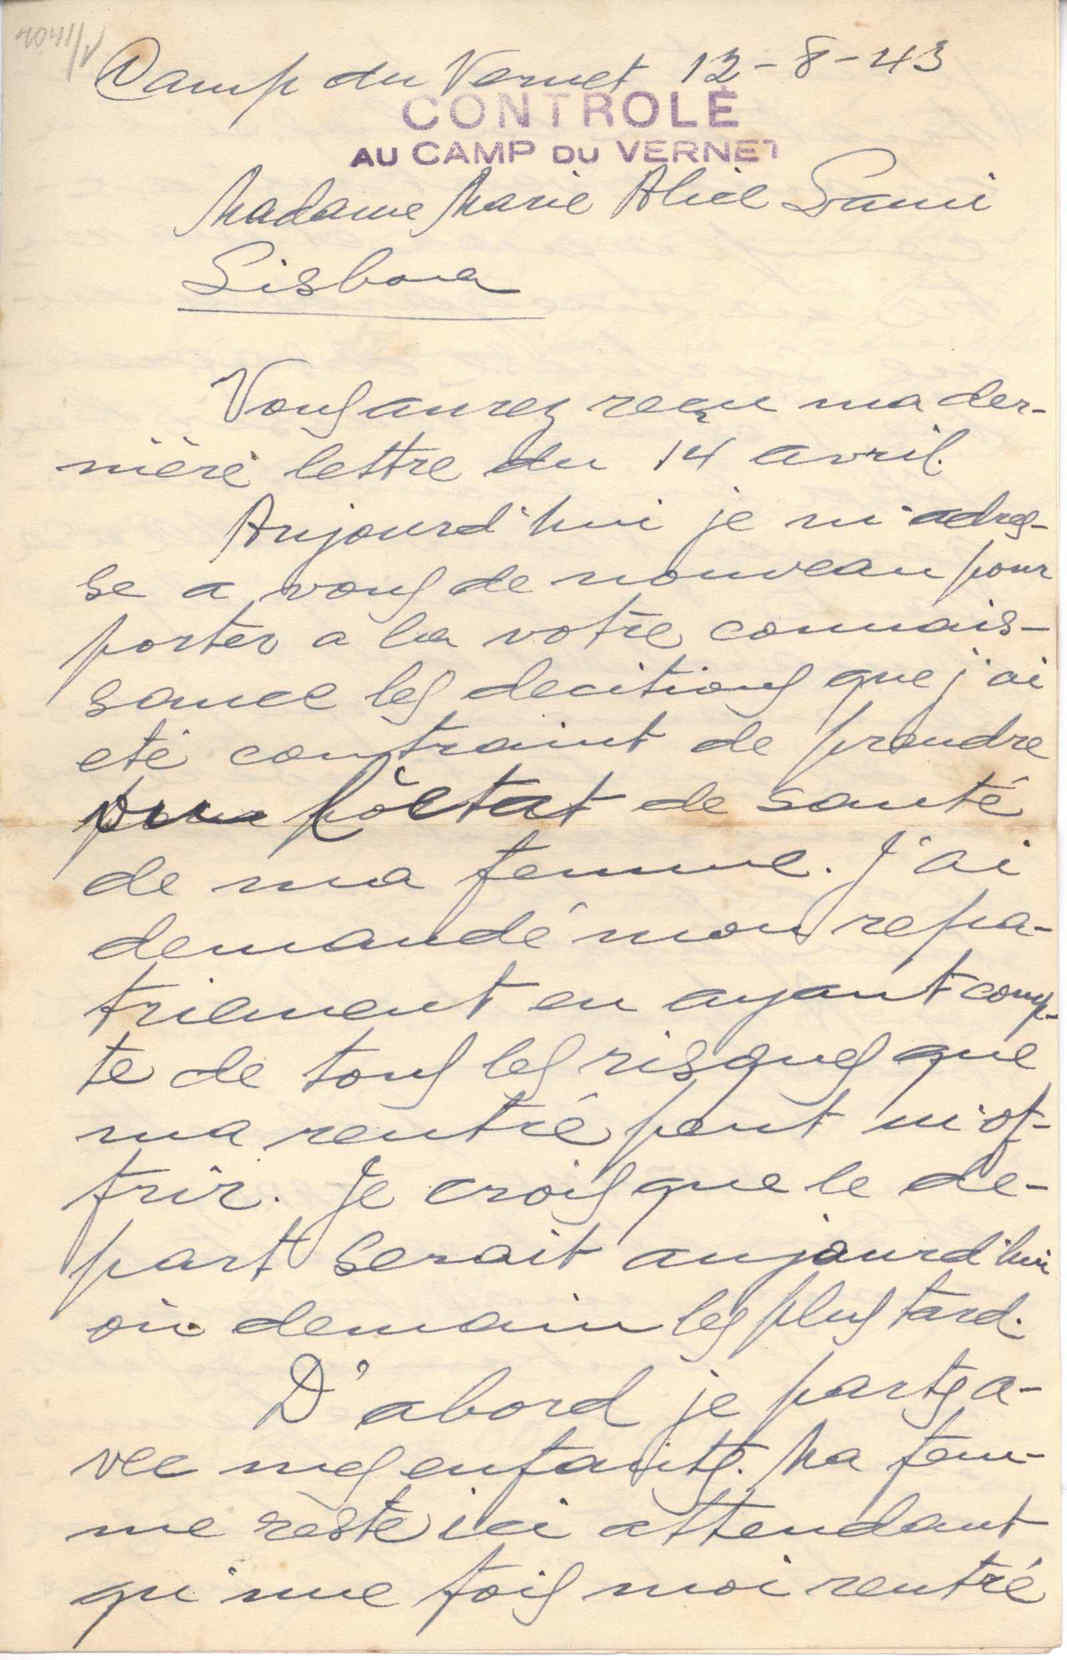 Camp du Vernet 12-8-43
CONTROLÉ
AU CAMP DU VERNET
Madame Marie Alice Lami
Lisbona
Vous aurez reçu ma der-
nière lettre du 14 avril.
Aujourd'hui je m'adres-
se a vous de nouveau pour
porter a la votre connais-
sance les decitions que j'ai
eté contraint de prendre
l'êtat de santé
de ma femme. J'ai
demandé mon repa-
triement en ayant comp-
te de tous les risques que
ma rentré peut m'of-
frir. Je crois que le de-
part serait aujourd'hui
où demain les plus tard.
D'abord je parts a-
vec mes enfants. Ma fem-
me reste ici attendant
qu'une fois moi rentré